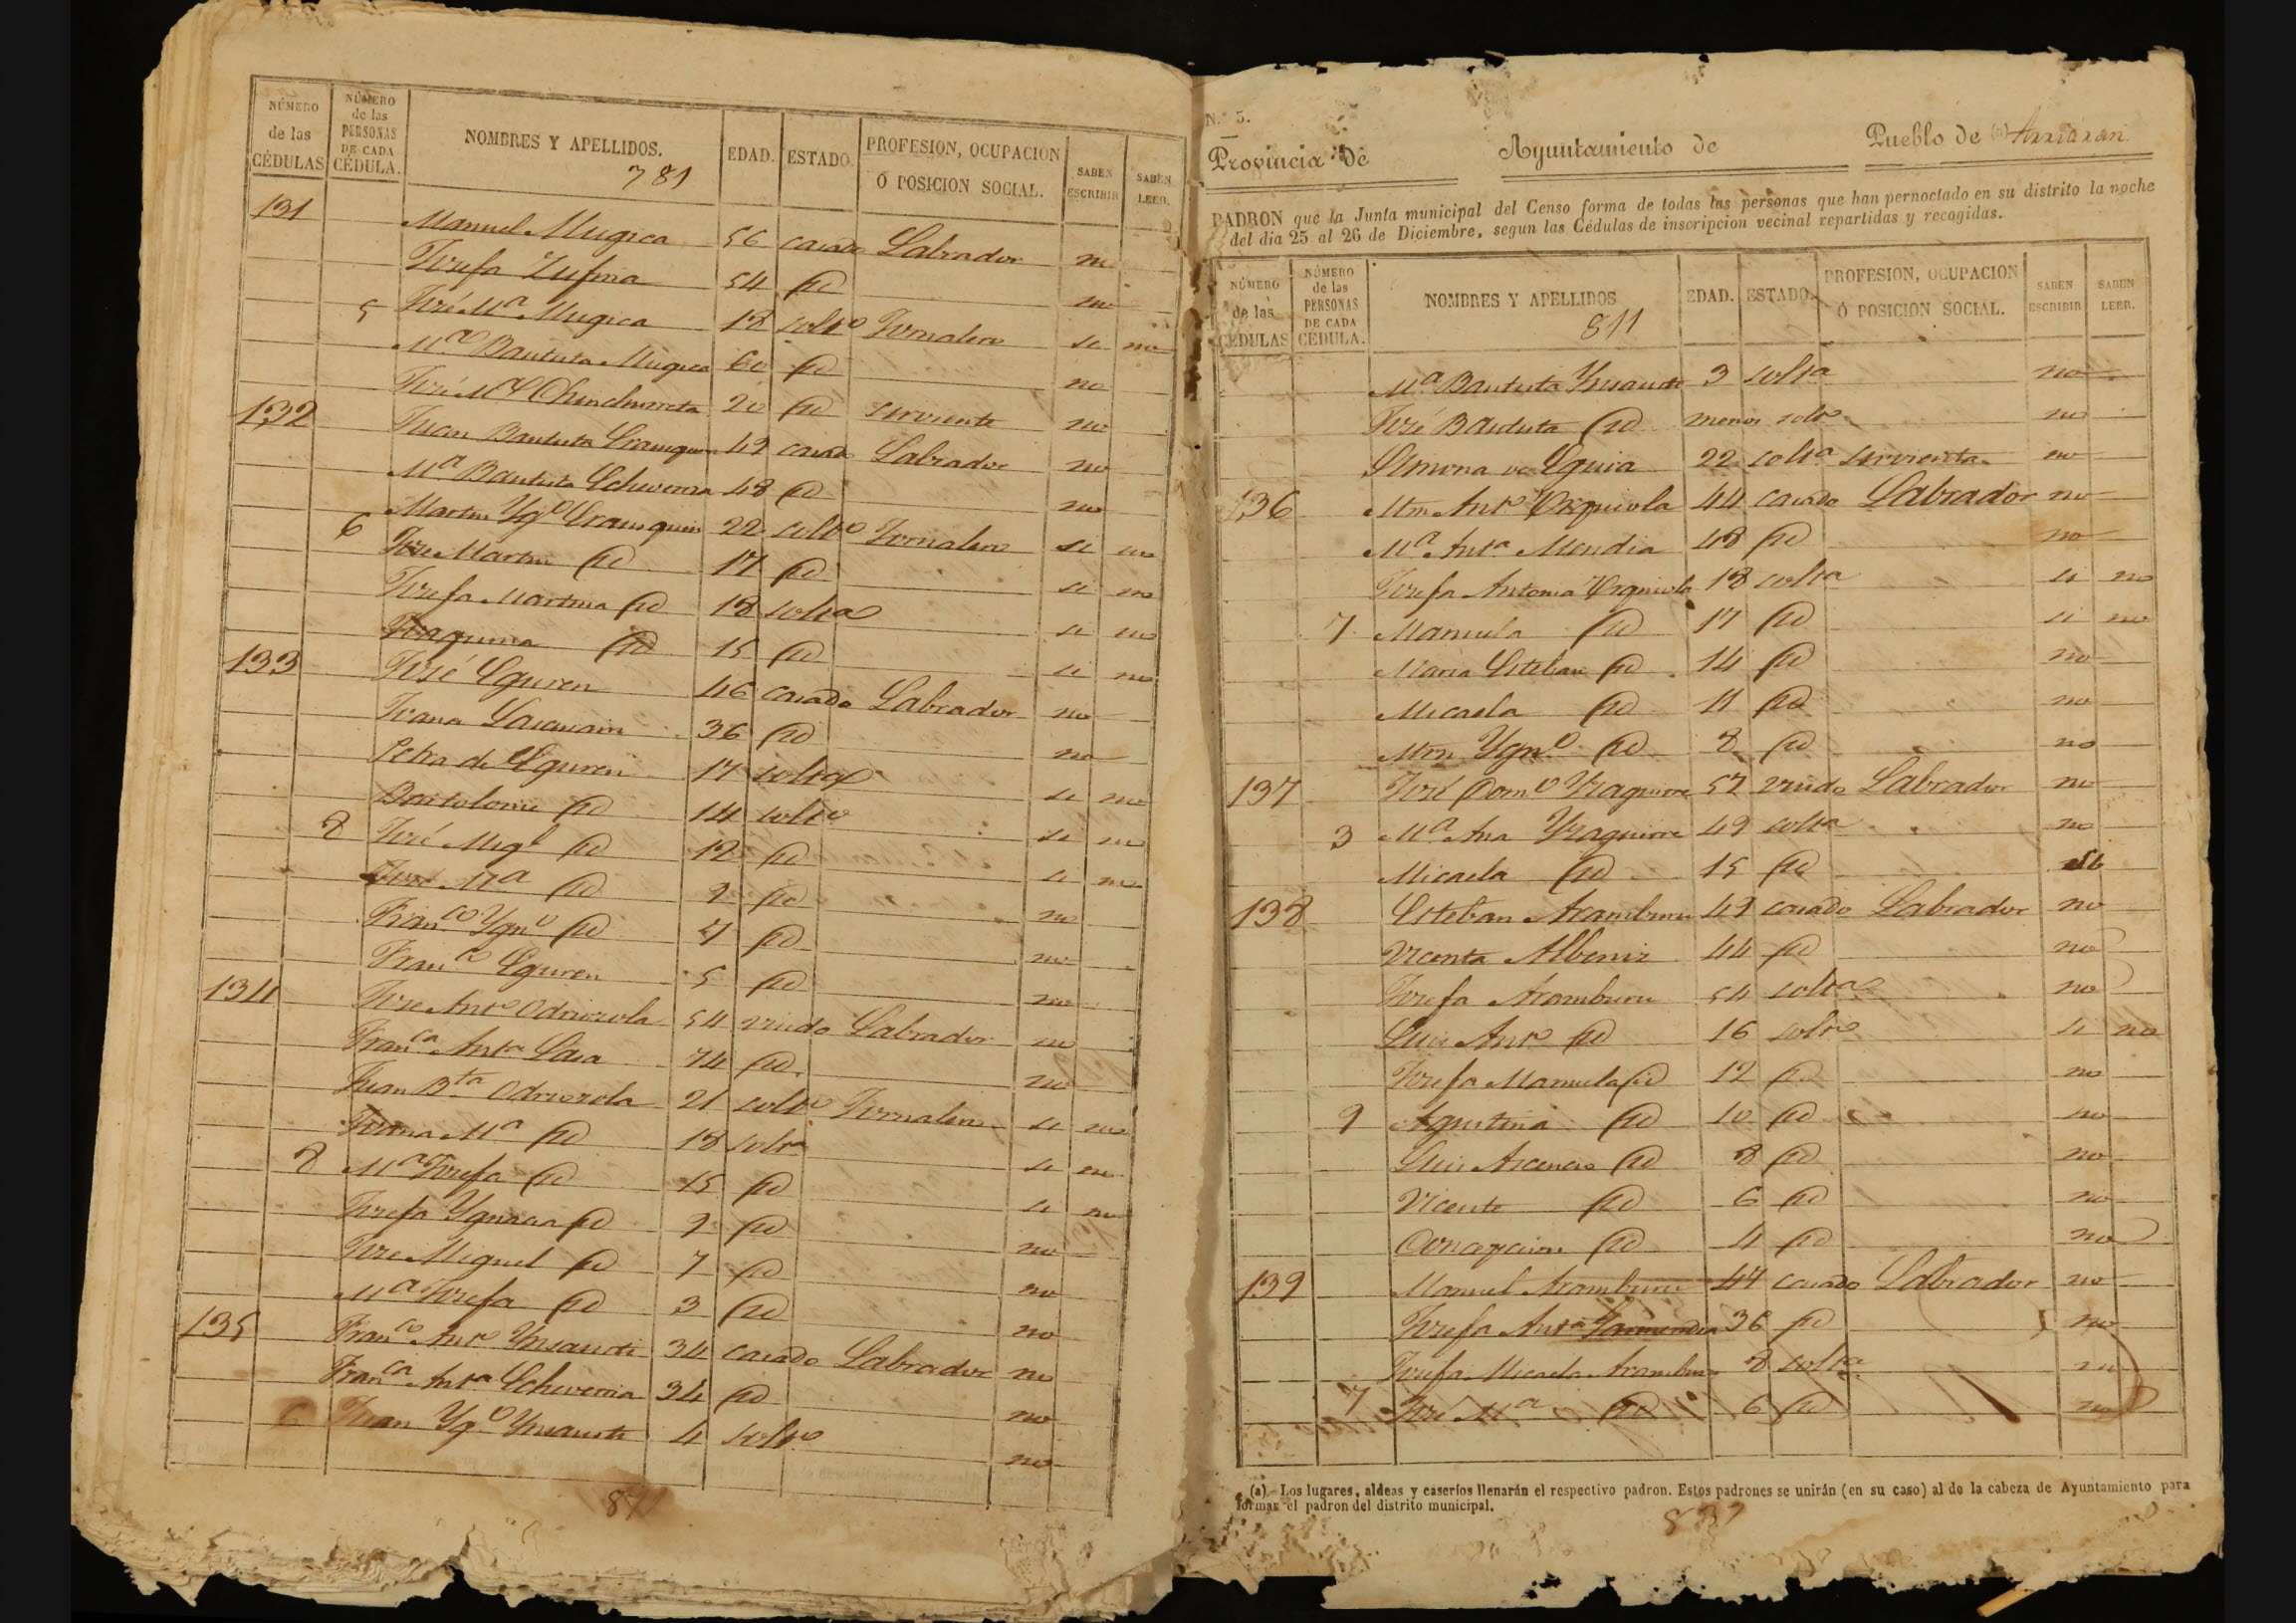 NÚMERO de las CÉDULAS NÚMERO de las PERSONAS DE CADA CÉDULA. NOMBRES Y APELLIDOS. EDAD. ESTADO. PROFESION, OCUPACION Ó POSICION SOCIAL. SABEN ESCRIBIR SABEN LEER.
781
131 Manuel Mugica 56 casado Labrador no
Josefa 54 id no
5 José Mª Mugica 18 soltº Jornalero si no
Mª Bautista Mugica 60 id no
José Mª Chinchurreta 20 id sirviente no
132 Juan Bautista 49 casado Labrador no
Mª Bautista Echeverria 48 id no
Martin Ygº 22 soltº Jornalero si no
6 Jose Martin id 17 id si no
Josefa Martina id 18 solta si no
Joaquina id 15 id si no
133 José Eguren 46 casado Labrador no
Juana 36 id no
Petra de Eguren 17 solta si no
Bartolome id 14 solto si no
8 José Migl id 12 id si no
José Mª id 9 id no
Franco Ygnº id 7 id no
Franca Eguren 5 id no
134 Jose Antº Odriozola 54 viudo Labrador no
Franca Anta 74 id no
Juan Bta Odriozola 21 soltº Jornalero si no
Juana Mª id 18 solta si no
8 Mª Josefa id 15 id si no
Josefa Ygnacia id 9 id no
Jose Miguel id 7 id no
Mª Josefa id 3 id no
135 Franco Antº Ynsausti 34 casado Labrador no
Franca Anta Echeverria 34 id no
6 Juan Ygº Ynsausti 4 soltº no
Nº 3.
Provincia de Ayuntamiento de Pueblo de (a) Arriaran
PADRON que la Junta municipal del Censo forma de todas las personas que han pernoctado en su distrito la noche
del dia 25 al 26 de Diciembre, segun las Cédulas de inscripcion vecinal repartidas y recogidas.
NÚMERO de las CÉDULAS NÚMERO de las PERSONAS DE CADA CÉDULA. NOMBRES Y APELLIDOS EDAD. ESTADO. PROFESION, OCUPACION Ó POSICION SOCIAL. SABEN ESCRIBIR SABEN LEER.
811
Mª Bautista Ynsausti 3 solta no
José Bautista id menos solto no
Simona de Eguia 22 solta sirvienta no
136 Mtn Antº Urquiola 44 casado Labrador no
Mª Anta Mendia 48 id no
Josefa Antonia Urquiola 18 solta si no
7 Manuela id 17 id si no
Maria Esteban id 14 id no
Micaela id 11 id no
Mtn Ygnº id 8 id no
137 José Domº Yraguirre 57 viudo Labrador no
3 Mª Ana Yraguirre 49 solta no
Micaela id 15 id si
138 Esteban Aramburu 49 casado Labrador no
Vicenta Albeniz 44 id no
Josefa Aramburu 54 solta no
Luis Antº id 16 solto si no
Josefa Manuela id 12 id no
9 Agustina id 10 id no
Luis Ascencio id 8 id no
Vicente id 6 id no
Concepcion id 4 id no
139 Manuel Aramburu 47 casado Labrador no
Josefa Anta 36 id no
Josefa Micaela Aramburu 8 solta no
7 José Mª id 6 id no
(a) Los lugares, aldeas y caseríos llenarán el respectivo padron. Estos padrones se unirán (en su caso) al de la cabeza de Ayuntamiento para
formar el padron del distrito municipal.